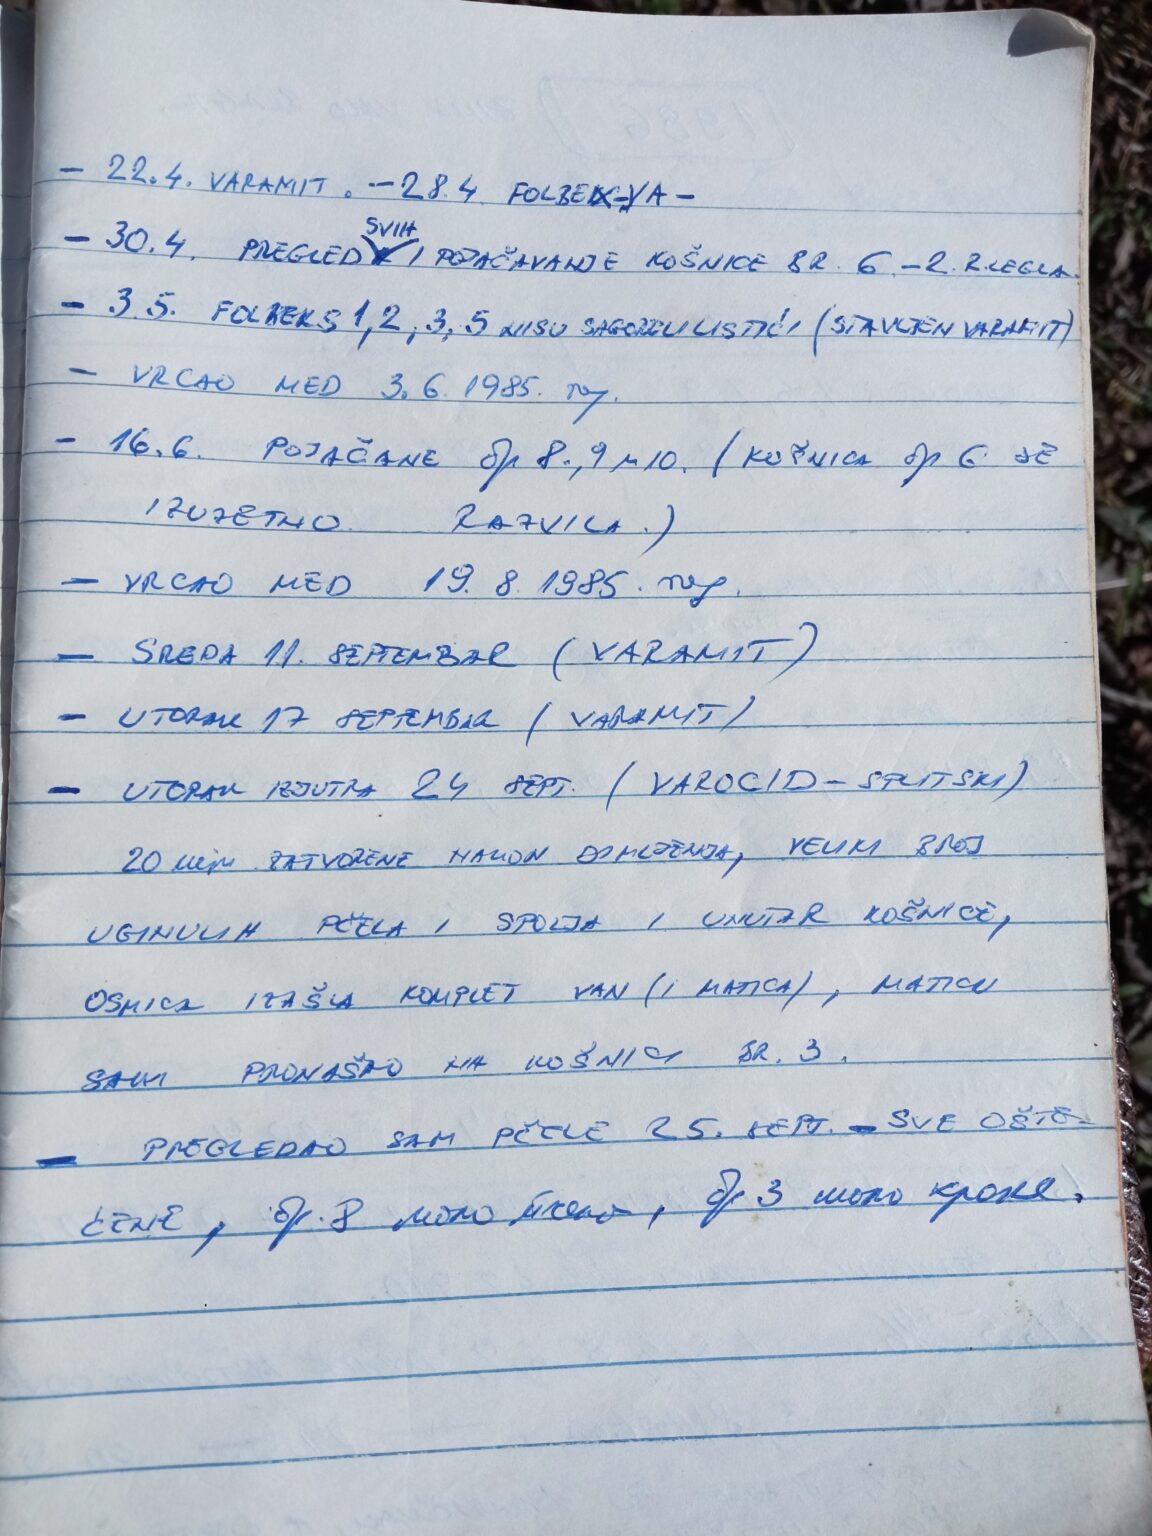 - 22.4. VARAMIT. - 28.4. FOLBEX-VA -
- 30.4. PREGLED SVIH I POJAČAVANJE KOŠNICE BR. 6 - 2. R. LEGLA.
- 3.5. FOLBEKS 1, 2, 3, 5 NISU SAGORELI LISTIĆI (STAVLJEN VARAMIT)
- VRCAO MED 3.6.1985. god.
- 16.6. POJAČANE бр 8, 9 и 10. (KOŠNICA бр 6 JE
IZUZETNO RAZVILA.)
- VRCAO MED 19.8.1985. god.
- SREDA 11. SEPTEMBAR (VARAMIT)
- UTORAK 17 SEPTEMBAR (VARAMIT)
- UTORAK UJUTRU 24 SEPT. (VAROCID - SPLITSKI)
20 min ZATVORENE NAKON DIMLJENJA, VELIKI BROJ
UGINULIH PČELA I SPOLJA I UNUTAR KOŠNICE,
OSMICA IZAŠLA KOMPLET VAN (I MATICA), MATICU
SAM PRONAŠAO NA KOŠNICI BR. 3.
- PREGLEDAO SAM PČELE 25. SEPT. - SVE OŠTE-
ĆENE, бр. 8 мало, бр 3 мало